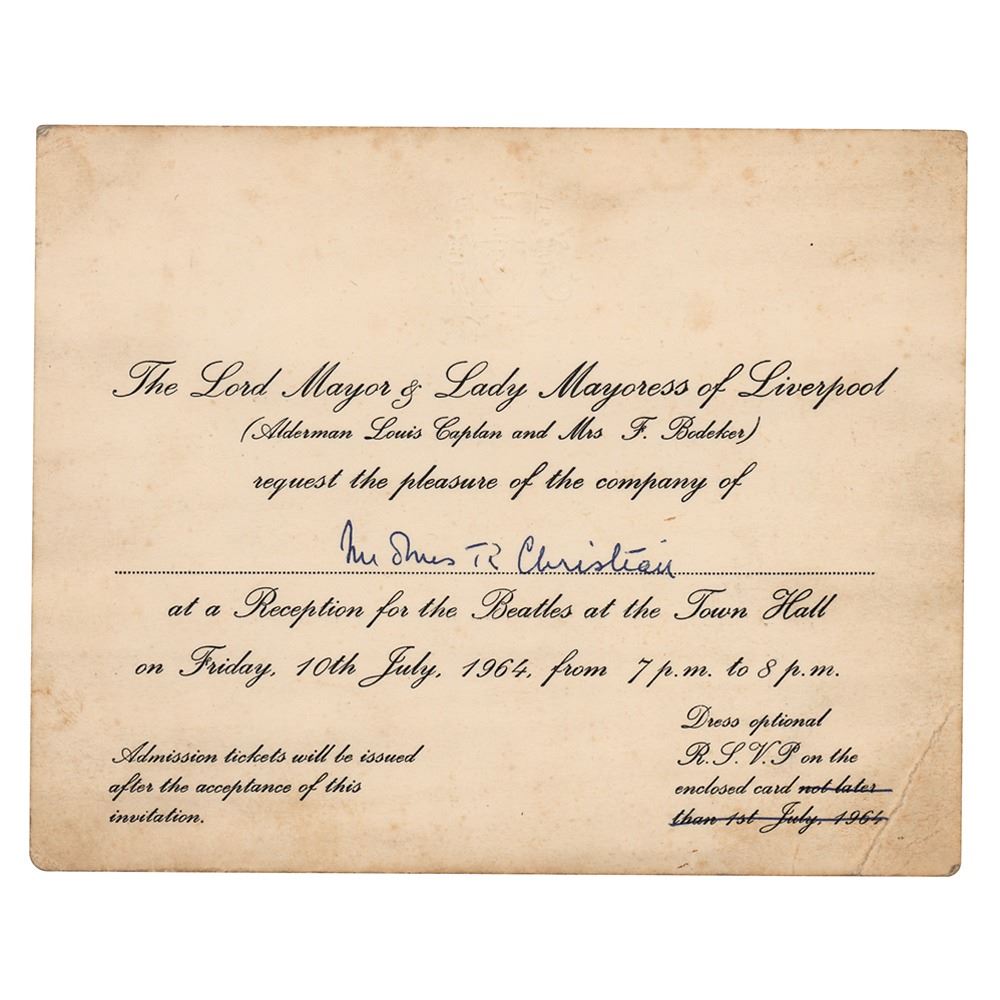 The Lord Mayor & Lady Mayoress of Liverpool
(Alderman Louis Caplan and Mrs F. Bodeker)
request the pleasure of the company of
Mr & Mrs R Christian
at a Reception for the Beatles at the Town Hall
on Friday, 10th July, 1964, from 7 p.m. to 8 p.m.
Admission tickets will be issued
after the acceptance of this
invitation.
Dress optional
R.S.V.P on the
enclosed card not later
than 1st July, 1964